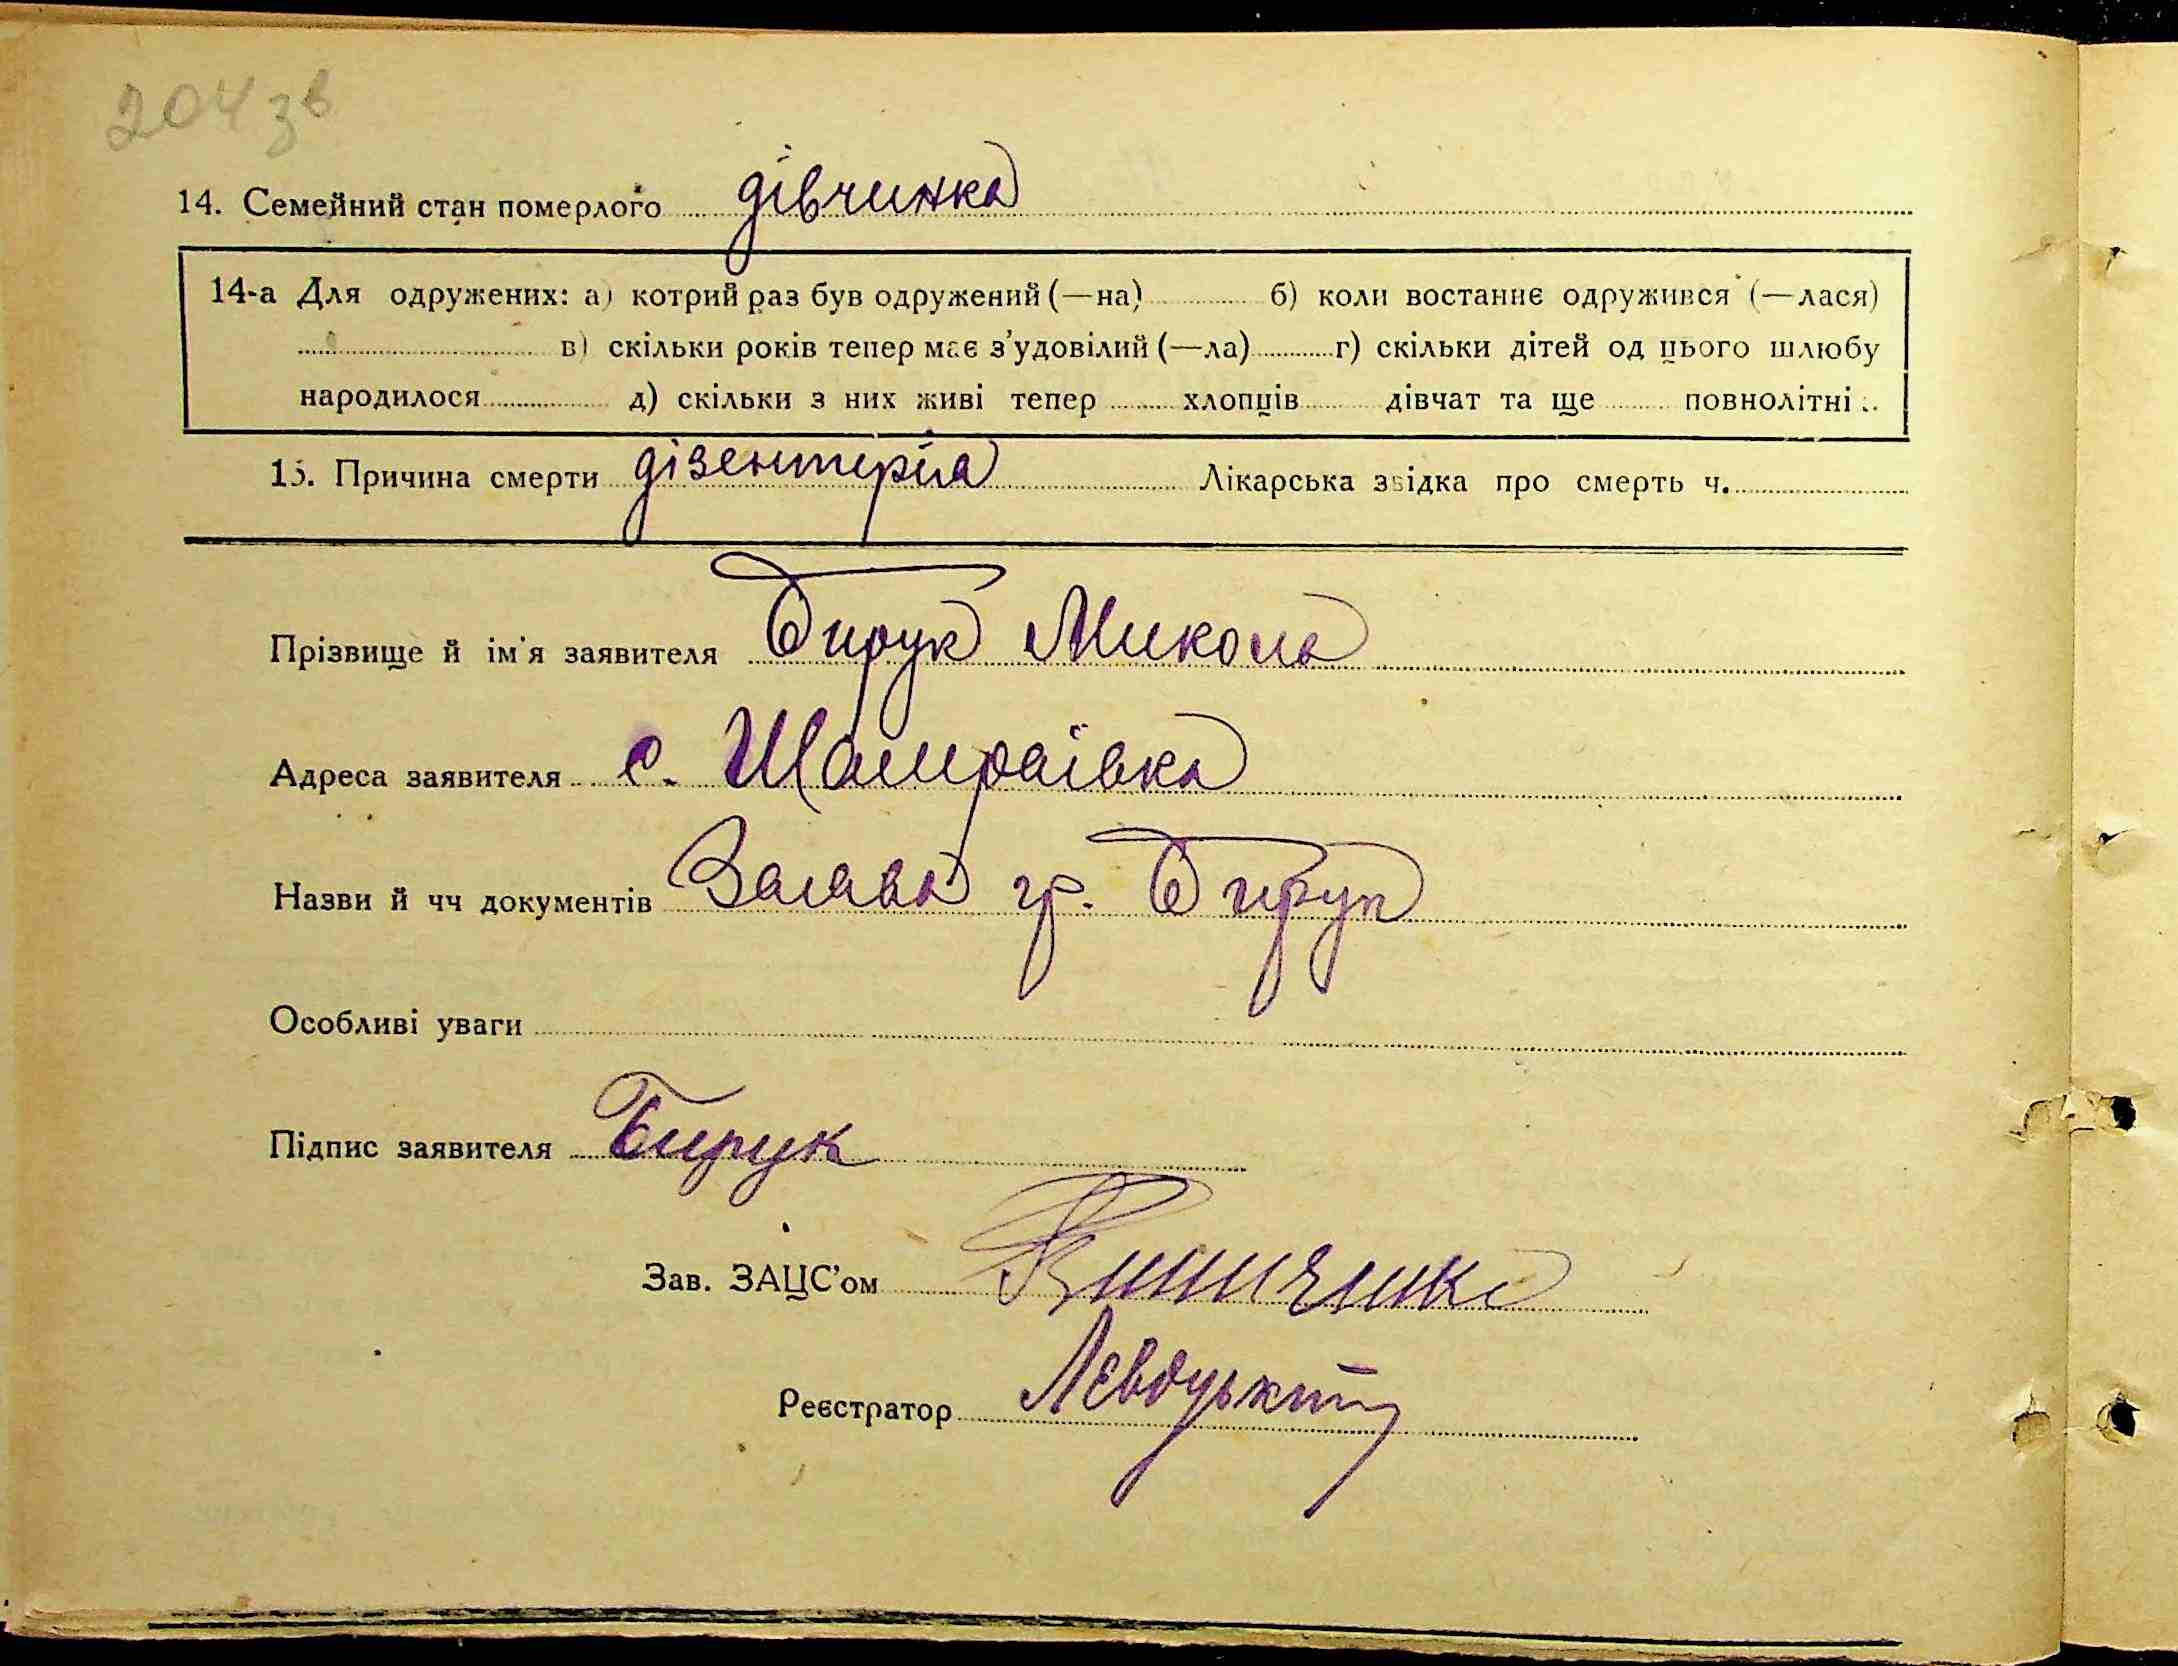 204 зв
14. Семейний стан померлого дівчинка
14-а Для одружених: а) котрий раз був одружений (—на) б) коли востаннє одружився (—лася)
в) скільки років тепер має з’удовілий (—ла) г) скільки дітей од цього шлюбу
народилося д) скільки з них живі тепер хлопців дівчат та ще повнолітні
15. Причина смерти дізентерія Лікарська звідка про смерть ч.
Прізвище й ім'я заявителя Бирук Микола
Адреса заявителя с. Шамраївка
Назви й чч документів Заява гр. Бирук
Особливі уваги
Підпис заявителя Бирук
Зав. ЗАЦС’ом
Реєстратор